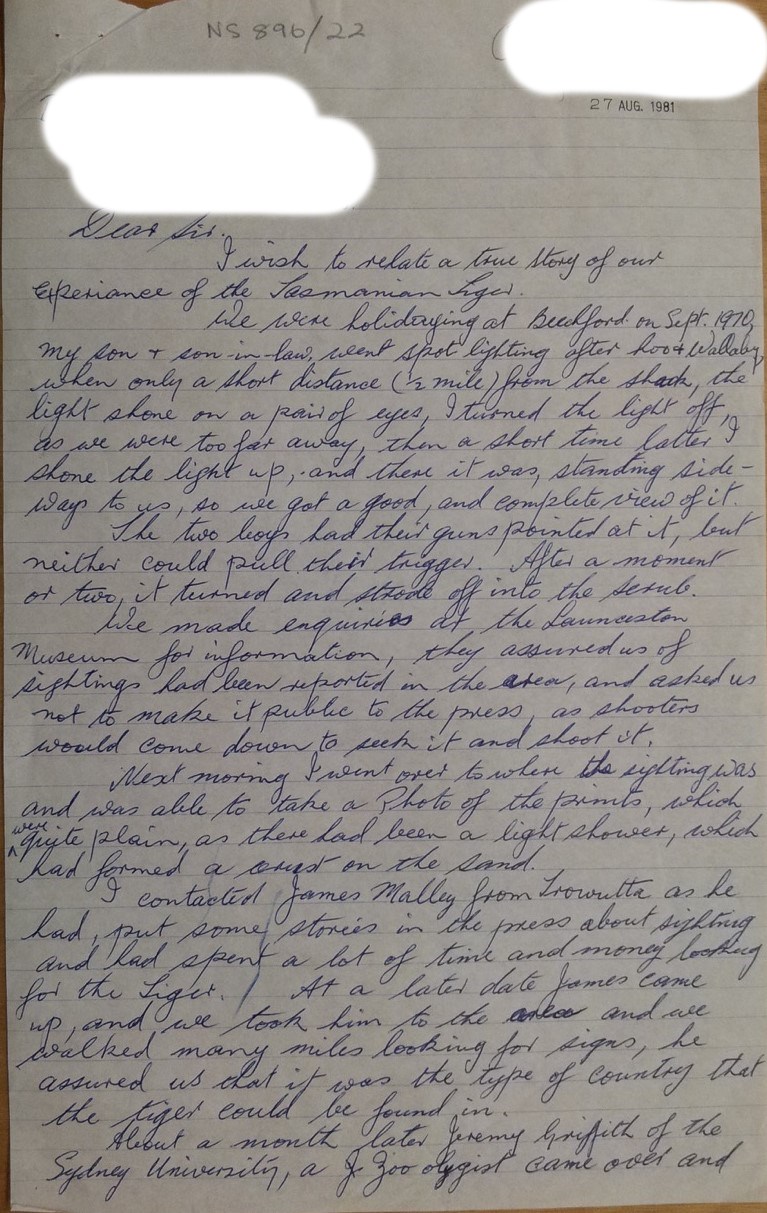 NS 896/22
27 AUG. 1981
Dear Sir.
I wish to relate a true story of our
Experiance of the Tasmanian Tiger.
We were holidaying at Beechford on Sept. 1970,
my son + son-in-law, went spot lighting after Roo + Wallaby,
when only a short distance (½ mile) from the shack, the
light shone on a pair of eyes, I turned the light off,
as we were too far away, then a short time latter I
shone the light up, and there it was, standing side-
ways to us, so we got a good, and complete view of it.
The two boys had their guns pointed at it, but
neither could pull their trigger. After a moment
or two, it turned and strode off into the scrub.
We made enquiries at the Launceston
Museum for information, they assured us of
sightings had been reported in the area, and asked us
not to make it public to the press, as shooters
would come down to seek it and shoot it.
Next morning I went over to where the sighting was
and was able to take a Photo of the prints, which
were quite plain, as there had been a light shower, which
had formed a crust on the sand.
I contacted James Malley from Trowutta as he
had, put some stories in the press about sighting
and had spent a lot of time and money looking
for the Tiger. / At a later date James came
up, and, we took him to the area and we
walked many miles looking for signs, he
assured us that it was the type of country that
the tiger could be found in.
About a month later Jeremy Griffith of the
Sydney University, a Zoologist came over and